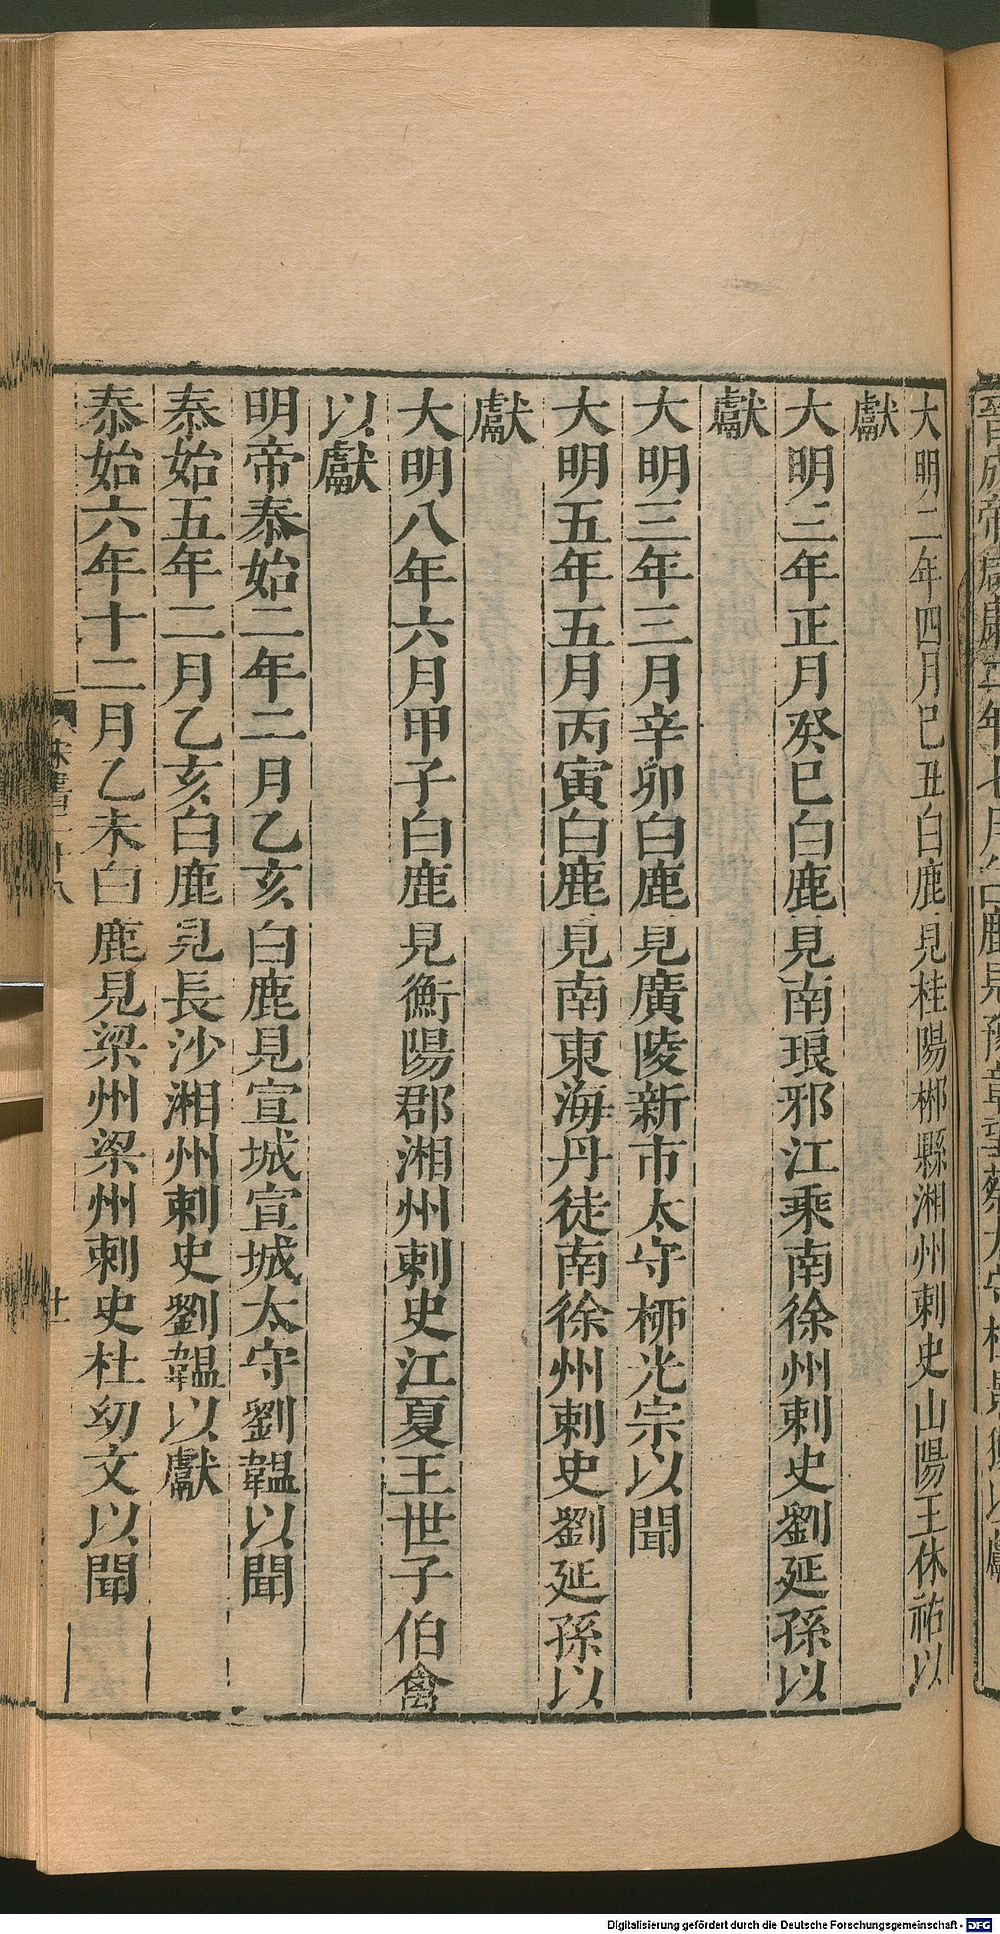 大明二年四月己丑白鹿見桂陽郴縣湘州刺史山陽王休祐以
獻
大明三年正月癸巳白鹿見南琅邪江乘南徐州刺史劉延孫以
獻
大明三年三月辛卯白鹿見廣陵新市太守柳光宗以聞
大明五年五月丙寅白鹿見南東海丹徒南徐州刺史劉延孫以
獻
大明八年六月甲子白鹿見衡陽郡湘州刺史江夏王世子伯禽
以獻
明帝泰始二年二月乙亥白鹿見宣城宣城太守劉韞以聞
泰始五年二月乙亥白鹿見長沙湘州刺史劉韞以獻
泰始六年十二月乙未白鹿見梁州梁州刺史杜幼文以聞
Digitalisierung gefördert durch die Deutsche Forschungsgemeinschaft - DFG